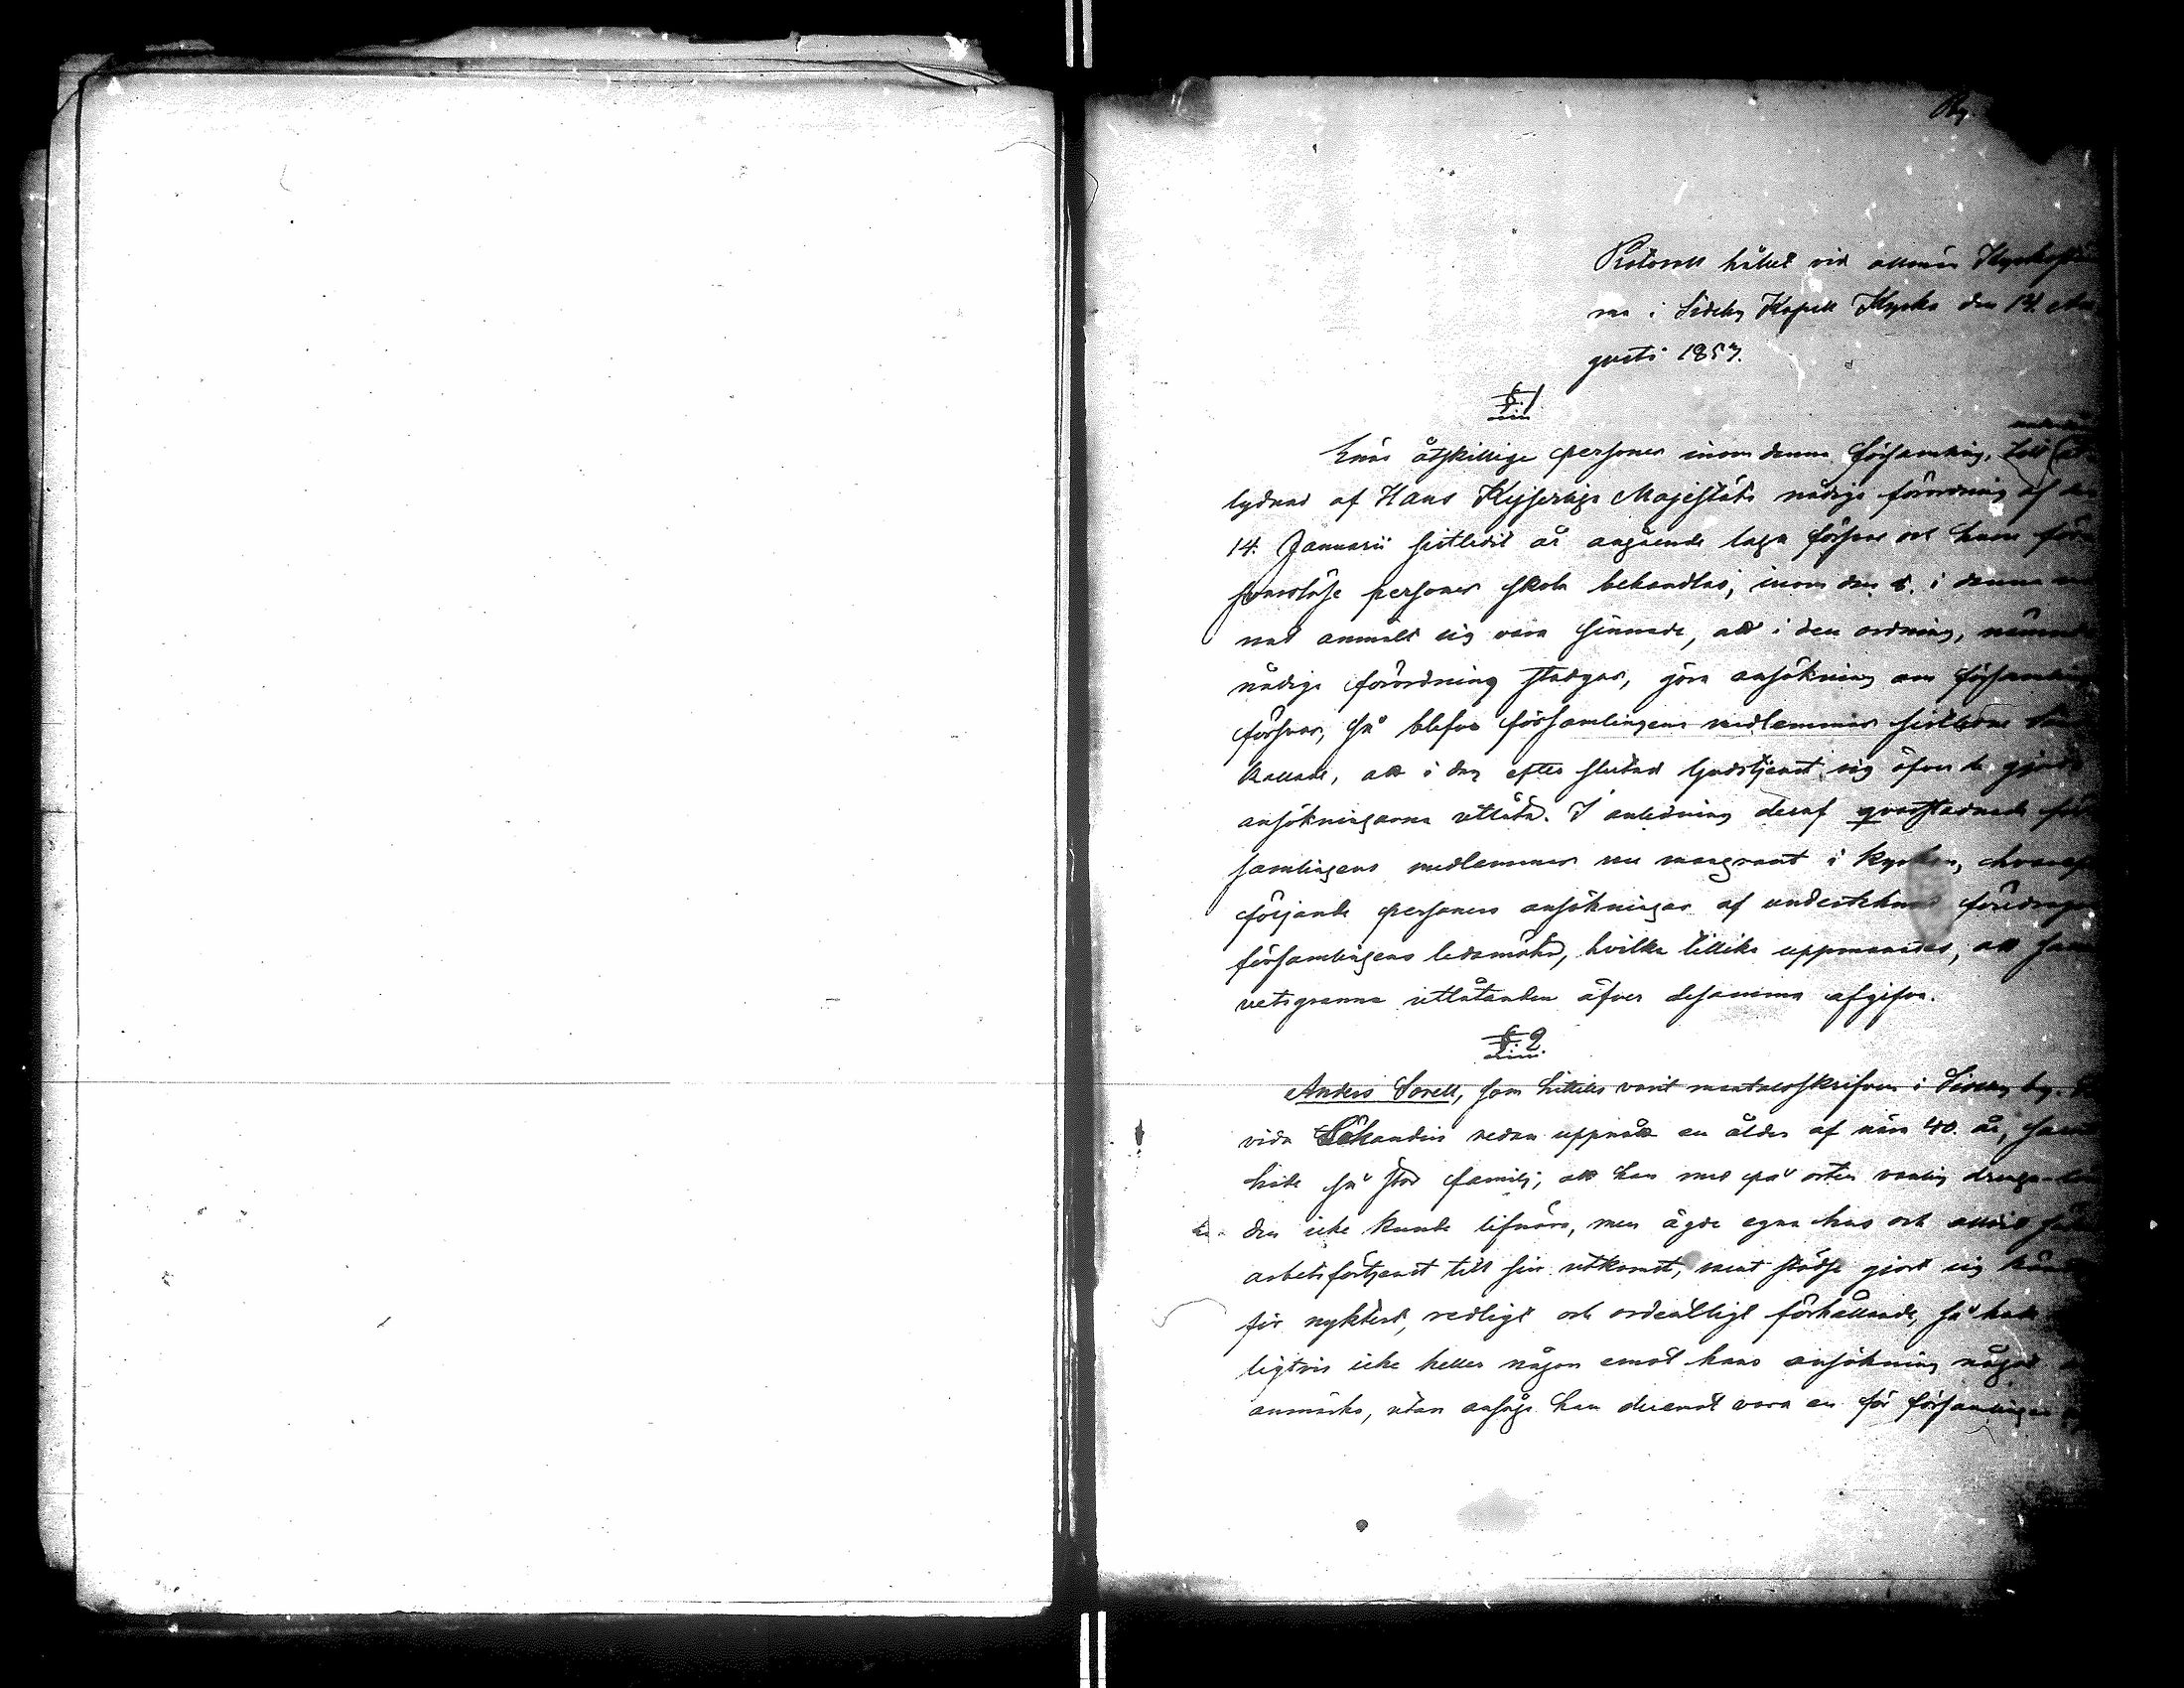 Protocoll hållet vid allmän Kyrkostäm
ma i Sideby Kapell Kyrka den 14 Au
gusti 1853.
§ 1
Enär åtskillige personer inom denna församling, till
lydnad af Hans Kejserliga Majestäts nådiga förordning af den
14. Januarii sistledit år angående laga försvar och huru för
svarslöse personer skola behandlas, inom den i denna
nad anmält sig vara sinnade, att i den ordning, nämnde
nådiga förordning stadgar, göra ansökning om församlings
försvar, så blefvo församlingens medlemmar sistledne
kallade, att i dag efter slutad Gudstjenst sig öfver de gjorda
ansökningarna utlåta. I anledning deraf qvarstadnade för
samlingens medlemmar nu mangrant i kyrkan,
följande personers ansökningar af undertecknad föredrogos
församlingens ledamöter, hvilka tillika uppmanades, att sam
vetsgranna utlåtanden öfver desamma afgifva.
§ 2.
Anders Sorell, som hittills varit mantalsskrifven i Sideby by.
vida Sökanden redan uppnått en ålder af nära 40. år, samt
hade så stor familj, att han med på orten vanlig drenga
den icke kunde lifnära, men ägde egna hus och alltid
arbetsförtjenst till sin utkomst, samt städse gjort sig känd
för nyktert, redligt och ordentligt förhållande, så hade
ligtvis icke heller någon emot hans ansökning något
anmärka, utan ansågs han deremot vara en för församlingen